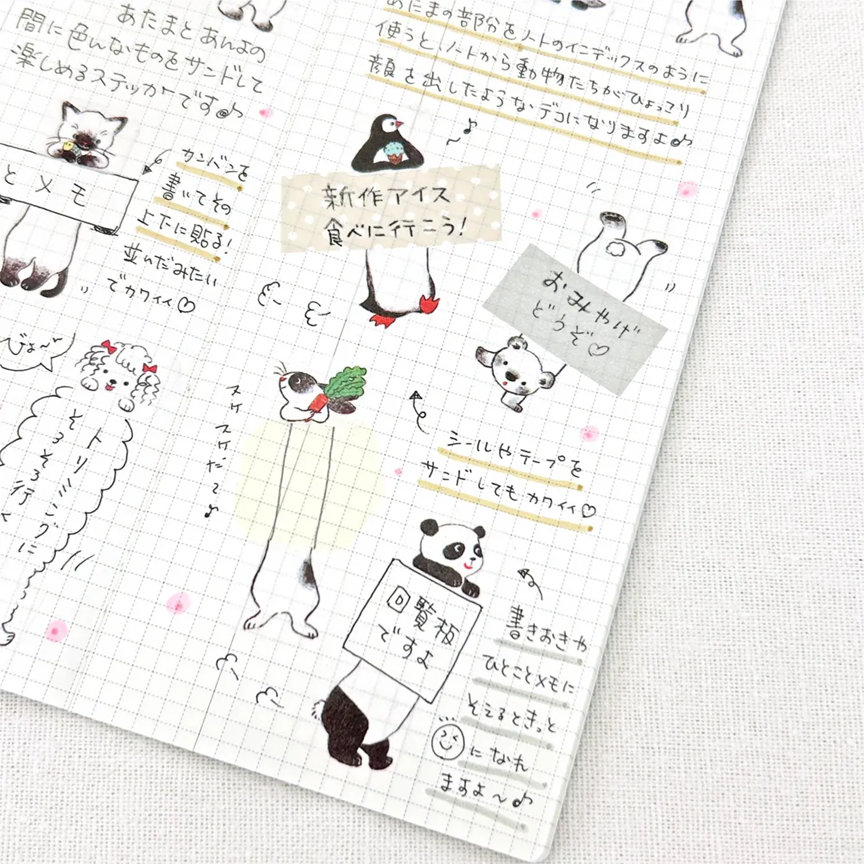 あたまとあんよの
間に色んなものをサンドして
楽しめるステッカーです♪
あたまの部分をノートのインデックスのように
使うと、ノートから動物たちがひょっこり
顔を出したようなデコになりますよ♪
とメモ
カンバンを
書いてその
上下に貼る!
並んだみたい
でカワイイ♡
新作アイス
食べに行こう!
おみやげ
どうぞ♡
トリミングに
そろそろ行く
スイスイだ〜♪
シールやテープを
サンドしてもカワイイ♡
回覧板
ですよ
書きおきや
ひとことメモに
そえるときっと
になれ
ますよ〜♪